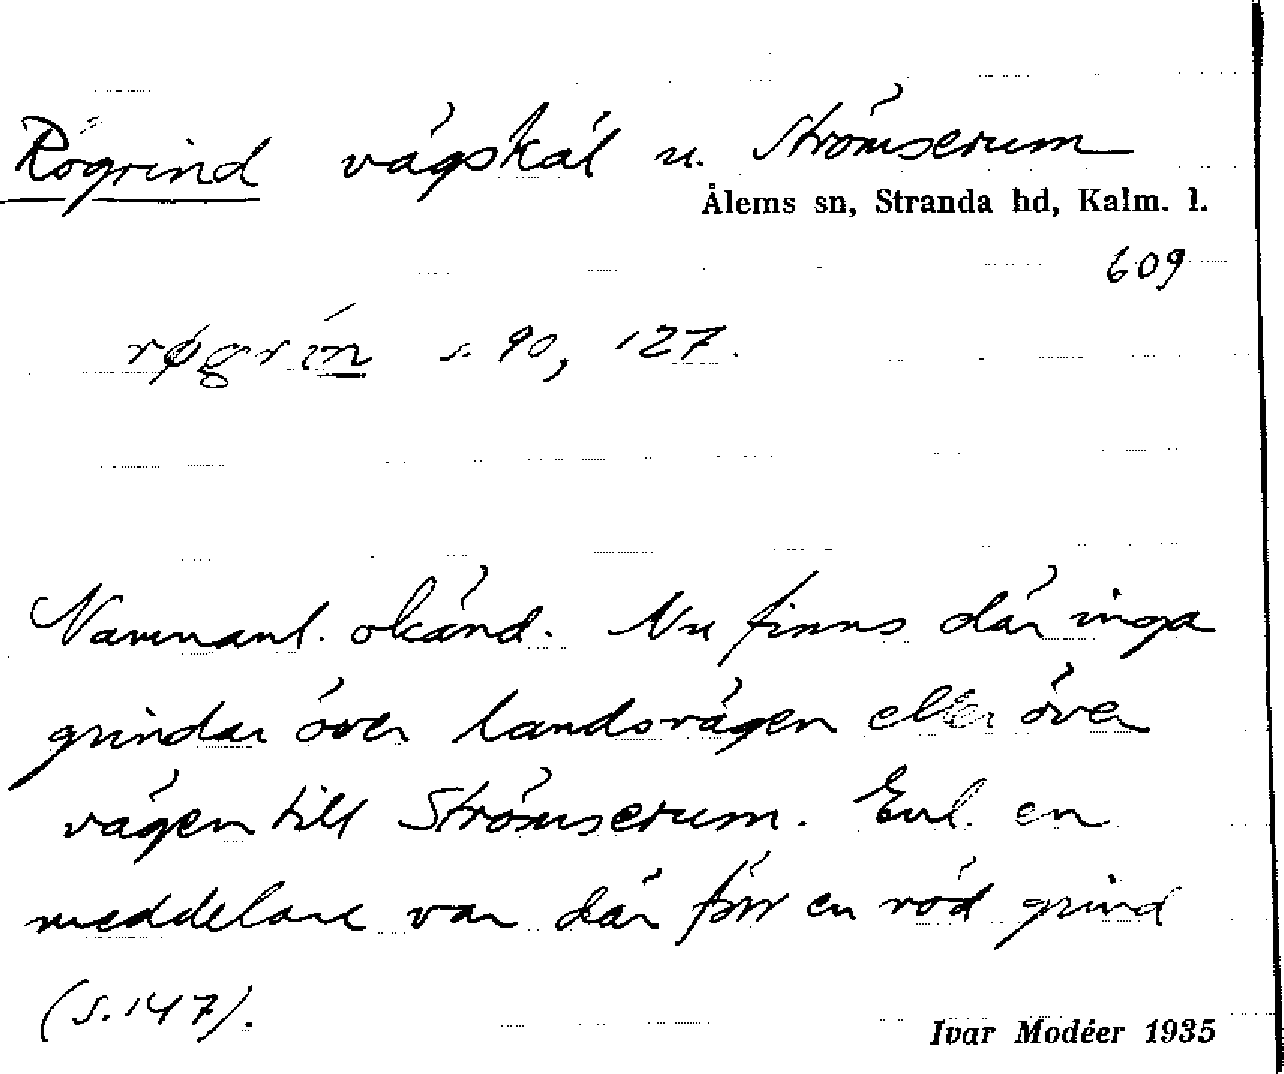 Rögrind vägskäl u. Strömserum
Ålems sn, Stranda hd, Kalm. l.
609
røgrin s. 90, 127.
Namnanl. okänd. Nu finns där inga
grindar över landsvägen eller över
vägen till Strömserum. Enl. en
meddelare var där förr en röd grind
(s. 147).
Ivar Modéer 1935